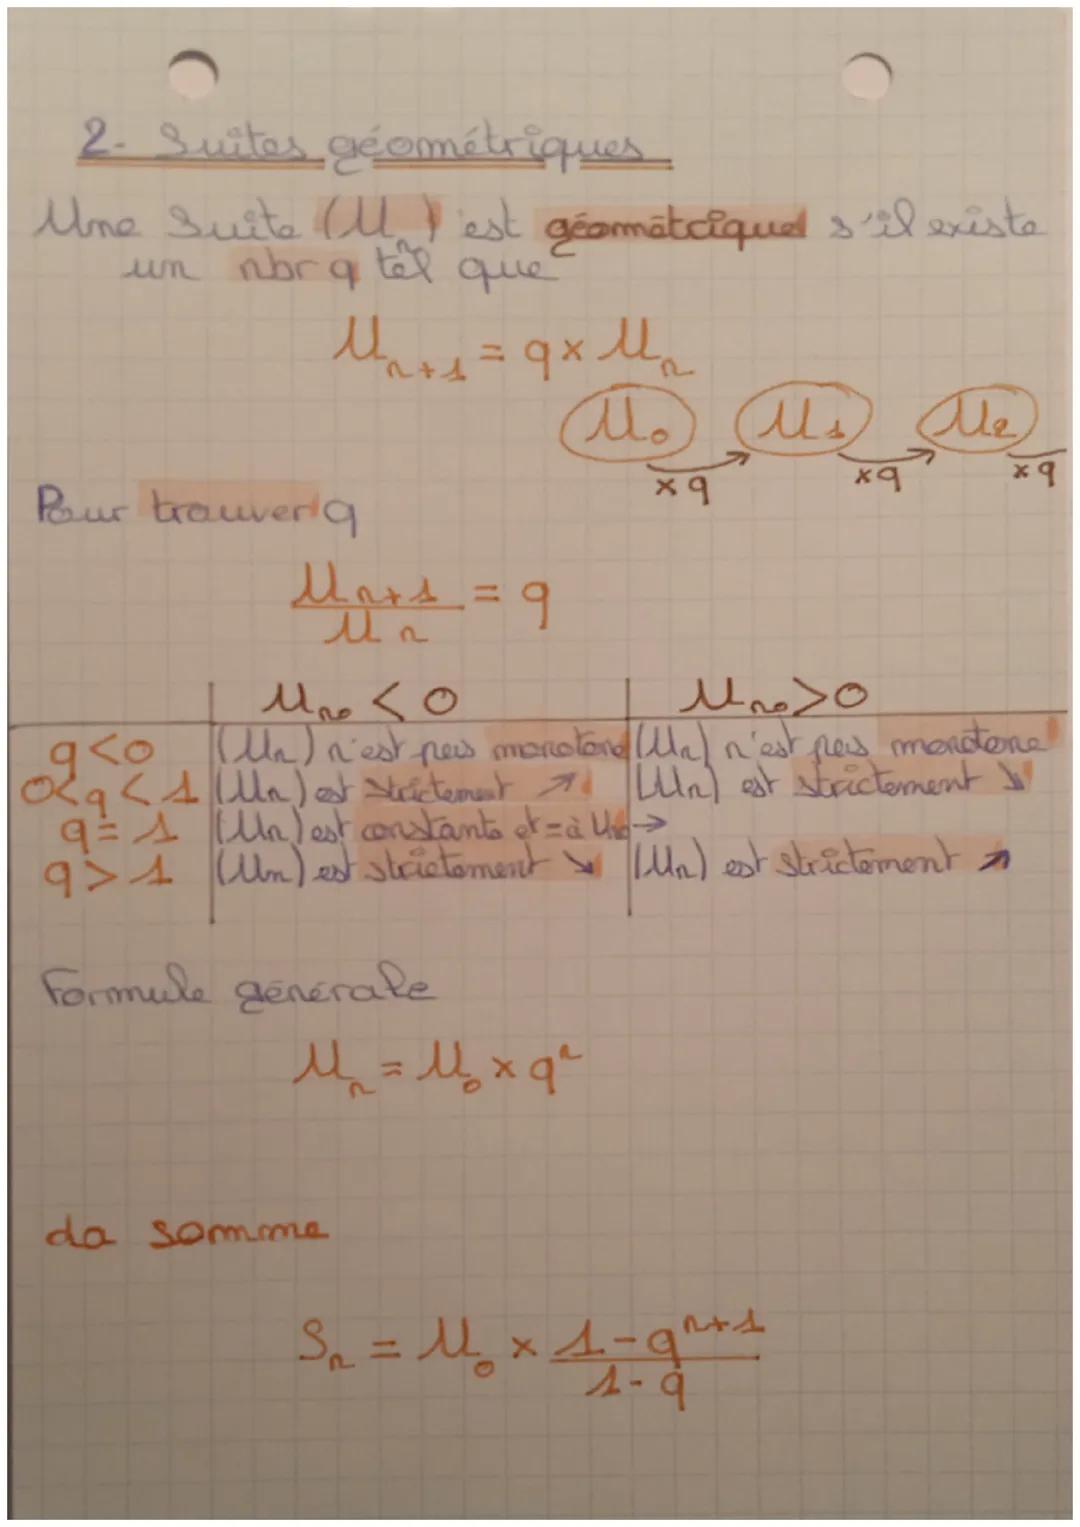 2- Suites géométriques
Une Suite (Un) est géométrique s'il existe
un nbr q tel que
Un+1 = q × Un
U0 U1 U2
×q ×q ×q
Pour trouver q
Un+1 / Un = q
Un0 < 0 Un0 > 0
q<0 (Un) n'est pas monotone (Un) n'est pas monotone
0<q<1 (Un) est strictement ↗ (Un) est strictement ↘
q=1 (Un) est constante et = à Un0 →
q>1 (Un) est strictement ↘ (Un) est strictement ↗
Formule générale
Un = U0 × qⁿ
La somme
Sn = U0 × (1-qⁿ⁺¹) / (1-q)